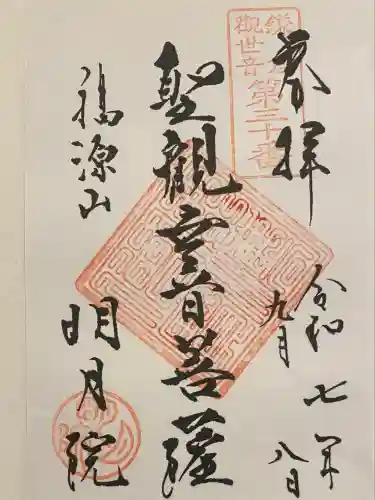 奉拝
鎌倉
観世音
第三十番
令和七年
九月八日
聖観世音菩薩
福源山
明月院